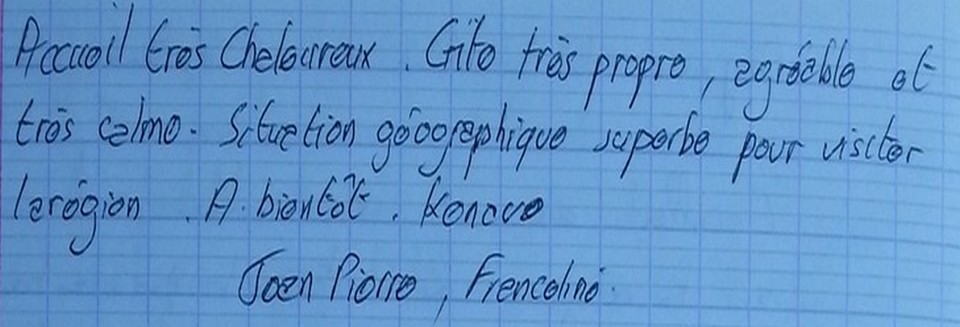 Accueil très Chaleureux. Gite très propre, agréable et
très calme. Situation géographique superbe pour visiter
la région. A bientôt. Kenavo
Jean Pierre, Franceline.